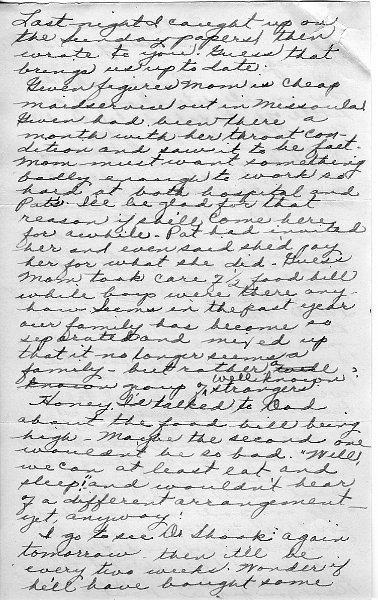 Last night I caught up on
the Sunday papers, then
wrote to you. Guess that
brings us up to date.
Gwen figures Mom is cheap
maidservice out in Missoula!
Gwen had been there a
month with her throat con-
dition and saw it to be fact.
Mom must want something
badly enough to work so
hard at both hospital and
Pats. I'll be glad for that
reason if she'll come here
for awhile. Pat had invited
her and even said she'd pay
her for what she did. Guess
Mom took care of ½ food bill
while boys were there any-
how. Seems in the past year
our family has become so
separated and mixed up
that it no longer seems a
family - but rather a
group of well known strangers.
Honey, I'd talked to Dad
about the food bill being
high - Maybe the second one
wouldn't be so bad. "Well,
we can at least eat and
sleep", and wouldn't hear
of a different arrangement -
yet, anyway!
I go to see Dr Shook again
tomorrow then it'll be
every two weeks. Wonder if
he'll have bought some